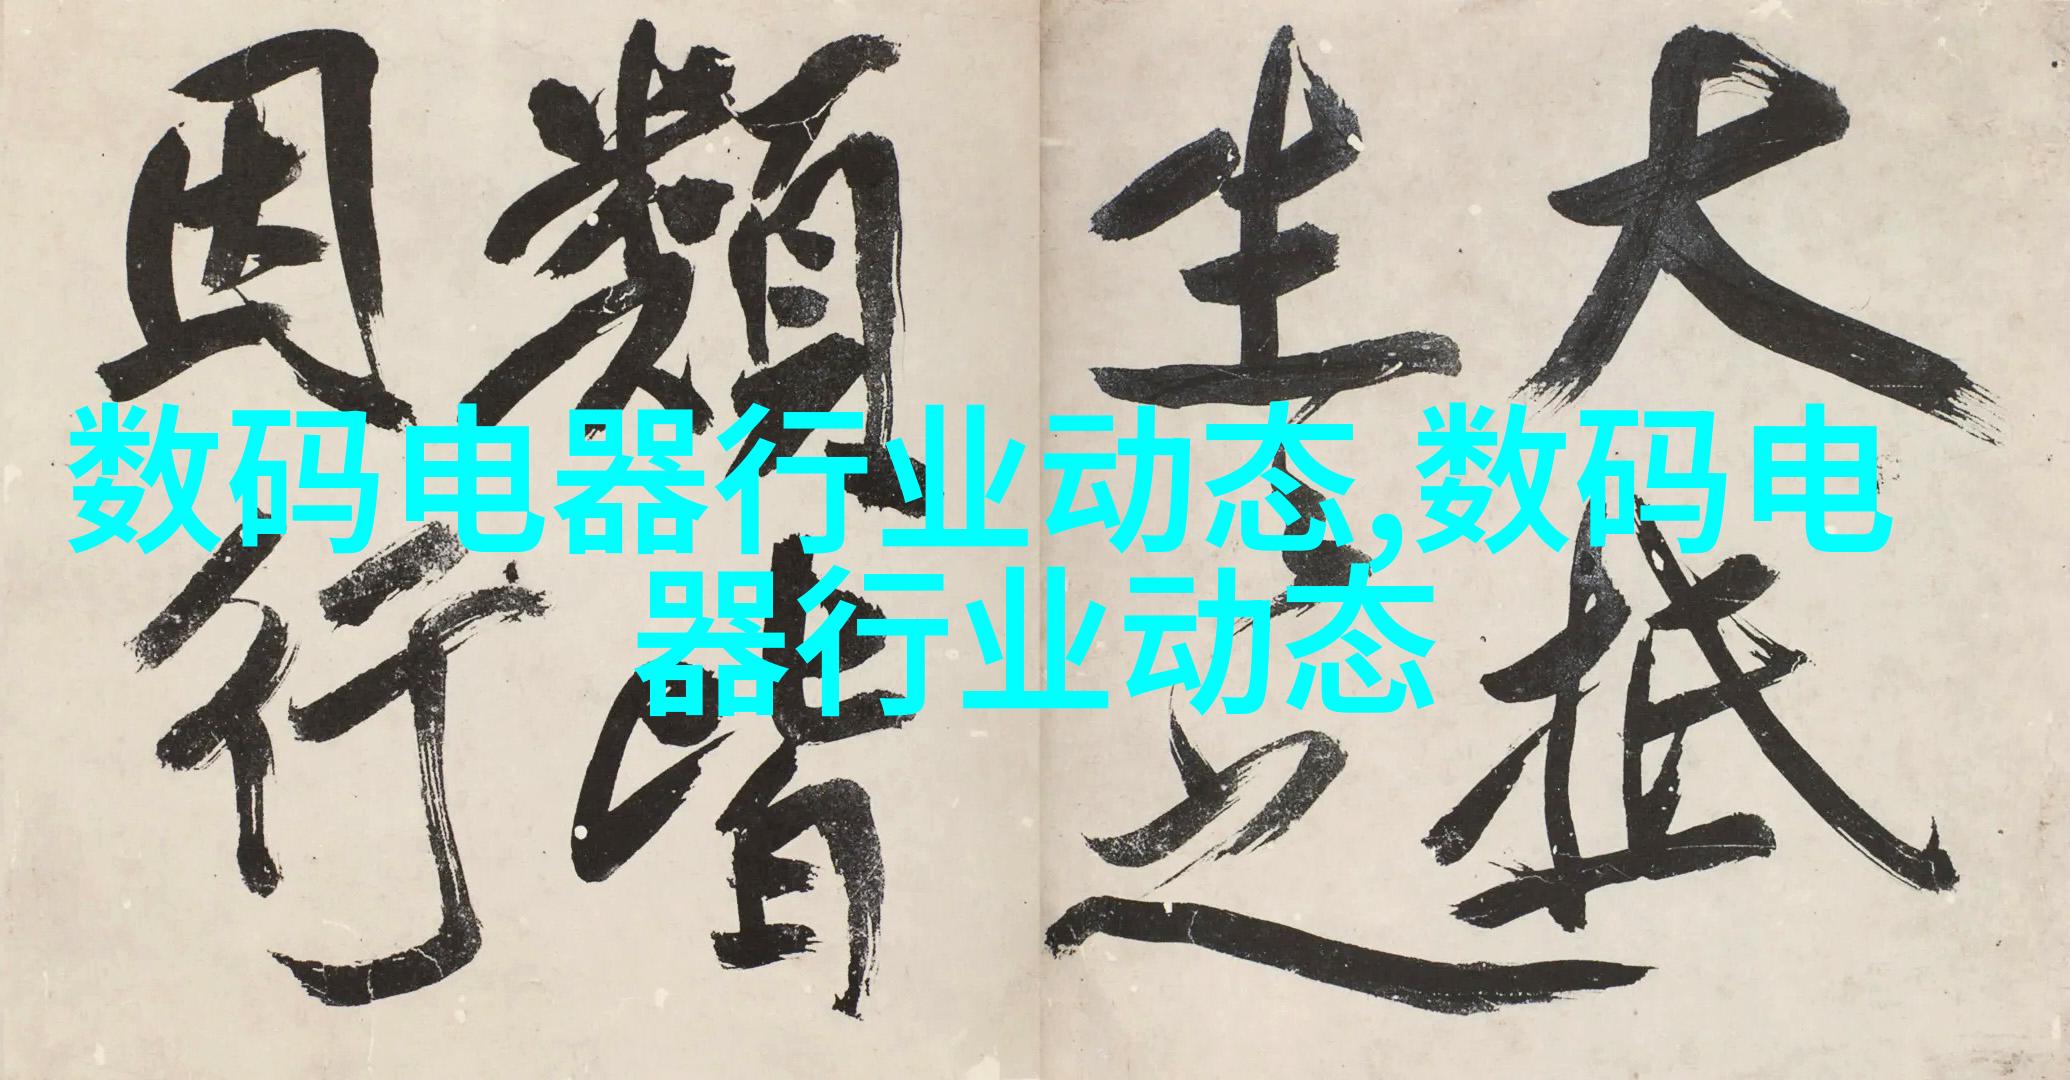 大抵
生之
類皆
因行
数码电器行业动态,数码电
器行业动态